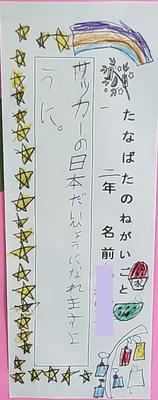 たなばたのねがいごと
二年 名前
サッカーの日本だいひょうになれますよ
うに。